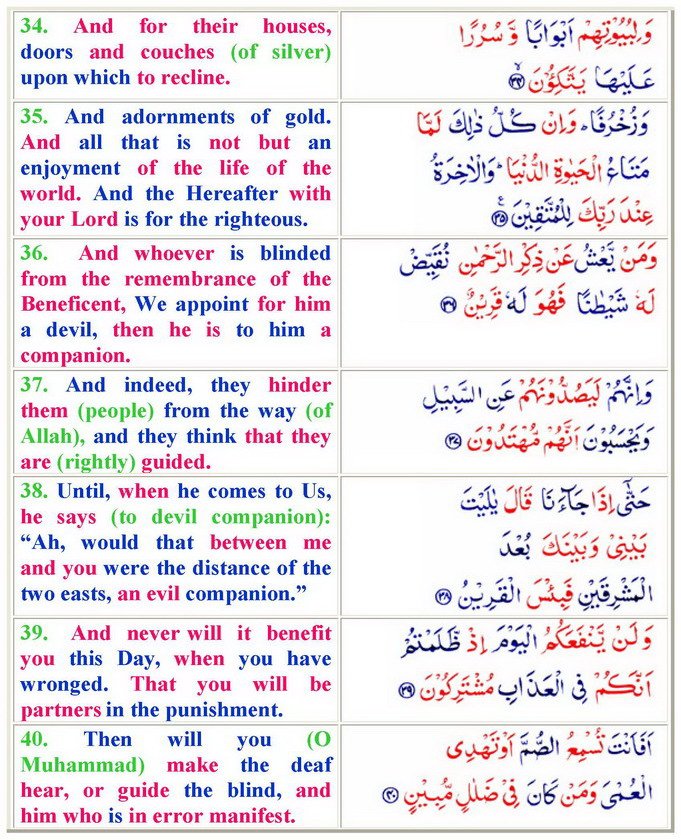 34. And for their houses,
doors and couches (of silver)
upon which to recline.
وَلِبُيُوْتِهِمْ اَبْوَابًا وَّسُرُرًا
عَلَيْهَا يَتَّكِؤُنَ ۙ‏﴿۳۴﴾
35. And adornments of gold.
And all that is not but an
enjoyment of the life of the
world. And the Hereafter with
your Lord is for the righteous.
وَزُخْرُفًا ؕ وَاِنْ كُلُّ ذٰلِكَ لَمَّا
مَتَاعُ الْحَيٰوةِ الدُّنْيَا ؕ وَالْاٰخِرَةُ
عِنْدَ رَبِّكَ لِلْمُتَّقِيْنَ ۧ‏﴿۳۵﴾
36. And whoever is blinded
from the remembrance of the
Beneficent, We appoint for him
a devil, then he is to him a
companion.
وَمَنْ يَّعْشُ عَنْ ذِكْرِ الرَّحْمٰنِ نُقَيِّضْ
لَهٗ شَيْطٰنًا فَهُوَ لَهٗ قَرِيْنٌ ‏﴿۳۶﴾
37. And indeed, they hinder
them (people) from the way (of
Allah), and they think that they
are (rightly) guided.
وَاِنَّهُمْ لَيَصُدُّوْنَهُمْ عَنِ السَّبِيْلِ
وَيَحْسَبُوْنَ اَنَّهُمْ مُّهْتَدُوْنَ ‏﴿۳۷﴾
38. Until, when he comes to Us,
he says (to devil companion):
“Ah, would that between me
and you were the distance of the
two easts, an evil companion.”
حَتّٰٓى اِذَا جَآءَنَا قَالَ يٰلَيْتَ
بَيْنِىْ وَبَيْنَكَ بُعْدَ
الْمَشْرِقَيْنِ فَبِئْسَ الْقَرِيْنُ ‏﴿۳۸﴾
39. And never will it benefit
you this Day, when you have
wronged. That you will be
partners in the punishment.
وَلَنْ يَّنْفَعَكُمُ الْيَوْمَ اِذْ ظَّلَمْتُمْ
اَنَّكُمْ فِى الْعَذَابِ مُشْتَرِكُوْنَ ‏﴿۳۹﴾
40. Then will you (O
Muhammad) make the deaf
hear, or guide the blind, and
him who is in error manifest.
اَفَاَنْتَ تُسْمِعُ الصُّمَّ اَوْ تَهْدِى
الْعُمْىَ وَمَنْ كَانَ فِىْ ضَلٰلٍ مُّبِيْنٍ ‏﴿۴۰﴾